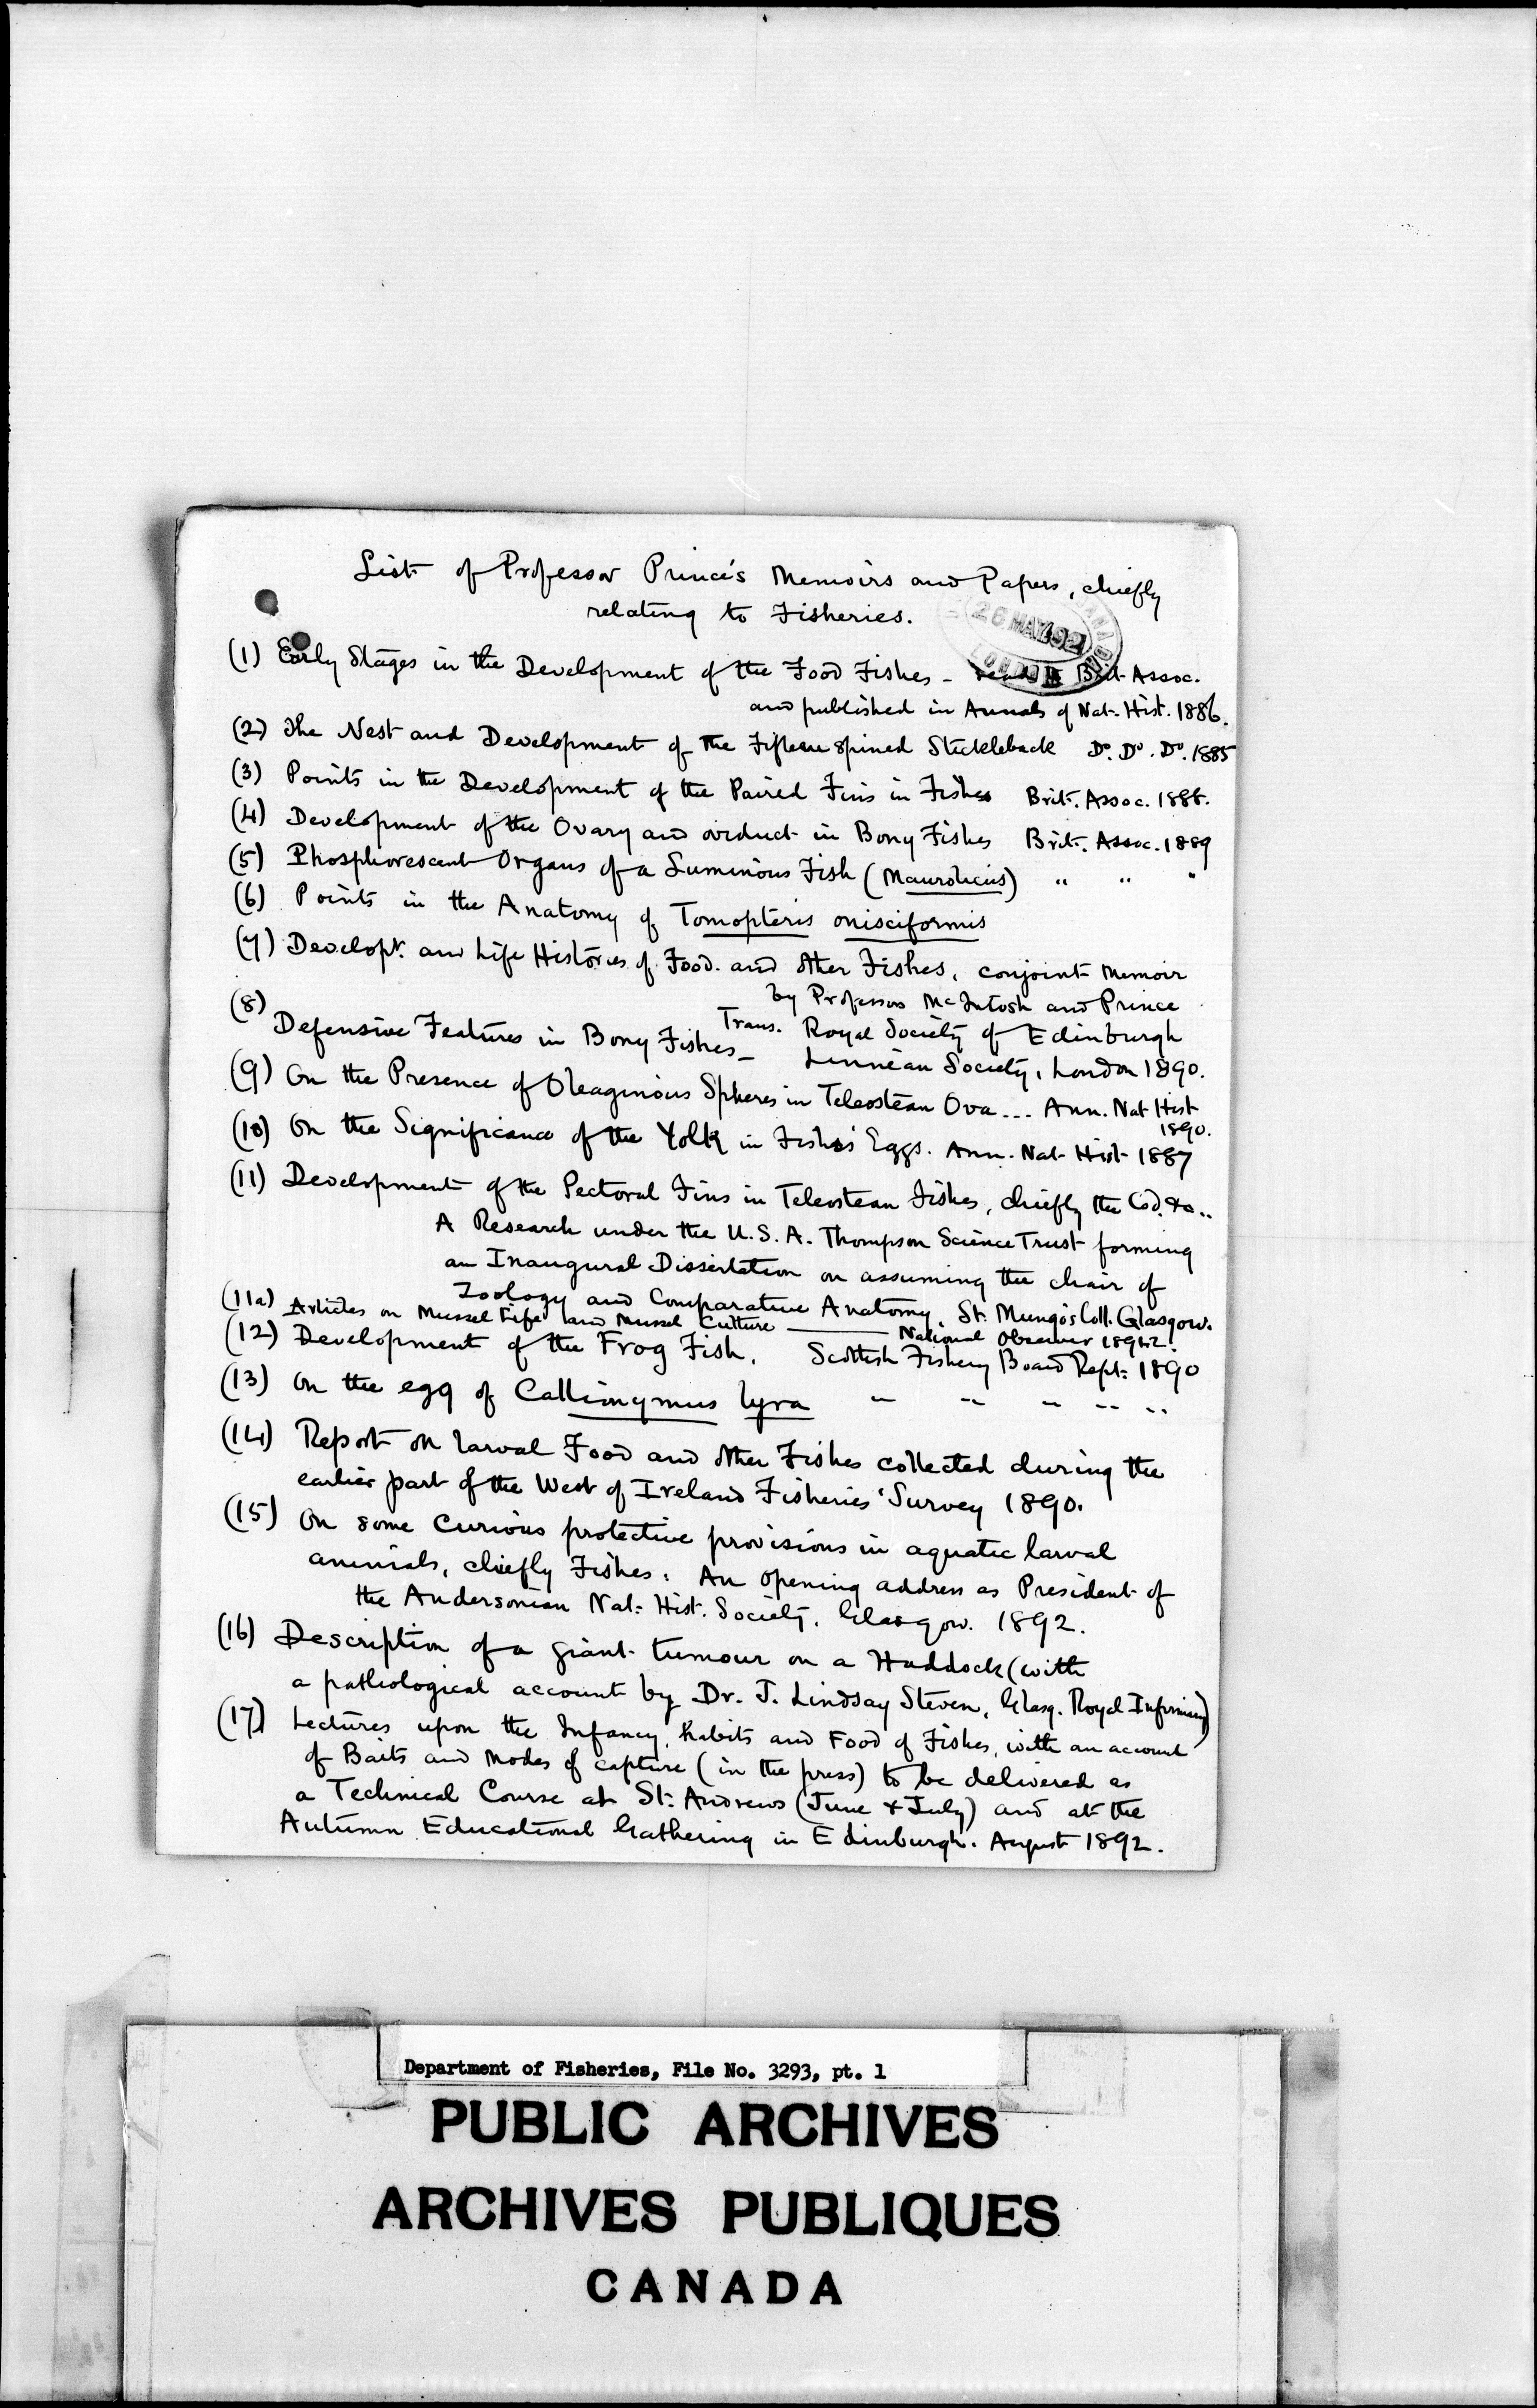 List of Professor Prince's Memoirs and Papers, chiefly
relating to Fisheries.
26 MAY 1892
LONDON
(1) Early Stages in the Development of the Food Fishes - read Brit. Assoc.
and published in Annals of Nat. Hist. 1886.
(2) The Nest and Development of the Fifteen spined Stickleback Do. Do. Do. 1885
(3) Points in the Development of the Paired Fins in Fishes Brit. Assoc. 1888.
(4) Development of the Ovary and oviduct in Bony Fishes Brit. Assoc. 1889
(5) Phosphorescent Organs of a Luminous Fish (Maurolicus) " " "
(6) Points in the Anatomy of Tomopteris onisciformis
(7) Developt. and Life Histories of Food and other Fishes, conjoint memoir
by Professors McIntosh and Prince
Trans. Royal Society of Edinburgh
(8) Defensive Features in Bony Fishes - Linnean Society, London 1890.
(9) On the Presence of Oleaginous Spheres in Teleostean Ova... Ann. Nat Hist
1890.
(10) On the Significance of the Yolk in Fishes' Eggs. Ann. Nat. Hist. 1887
(11) Development of the Pectoral Fins in Teleostean Fishes, chiefly the Cod, &c..
A Research under the U.S.A. Thompson Science Trust forming
an Inaugural Dissertation on assuming the chair of
Zoology and Comparative Anatomy, St. Mungo's Coll. Glasgow.
(11a) Articles on Mussel Life and Mussel Culture National Observer 1892.
(12) Development of the Frog Fish. Scottish Fishery Board Rept. 1890
(13) On the egg of Callionymus lyra " " " " "
(14) Report on larval Food and other Fishes collected during the
earlier part of the West of Ireland Fisheries' Survey 1890.
(15) On some curious protective provisions in aquatic larval
animals, chiefly Fishes: An opening address as President of
the Andersonian Nat. Hist. Society. Glasgow. 1892.
(16) Description of a giant tumour on a Haddock (with
a pathological account by Dr. J. Lindsay Steven, Glasg. Royal Infirmary)
(17) Lectures upon the Infancy, habits and Food of Fishes, with an account
of Baits and modes of capture (in the press) to be delivered as
a Technical Course at St. Andrews (June & July) and at the
Autumn Educational Gathering in Edinburgh. August 1892.
Department of Fisheries, File No. 3293, pt. 1
PUBLIC ARCHIVES
ARCHIVES PUBLIQUES
CANADA